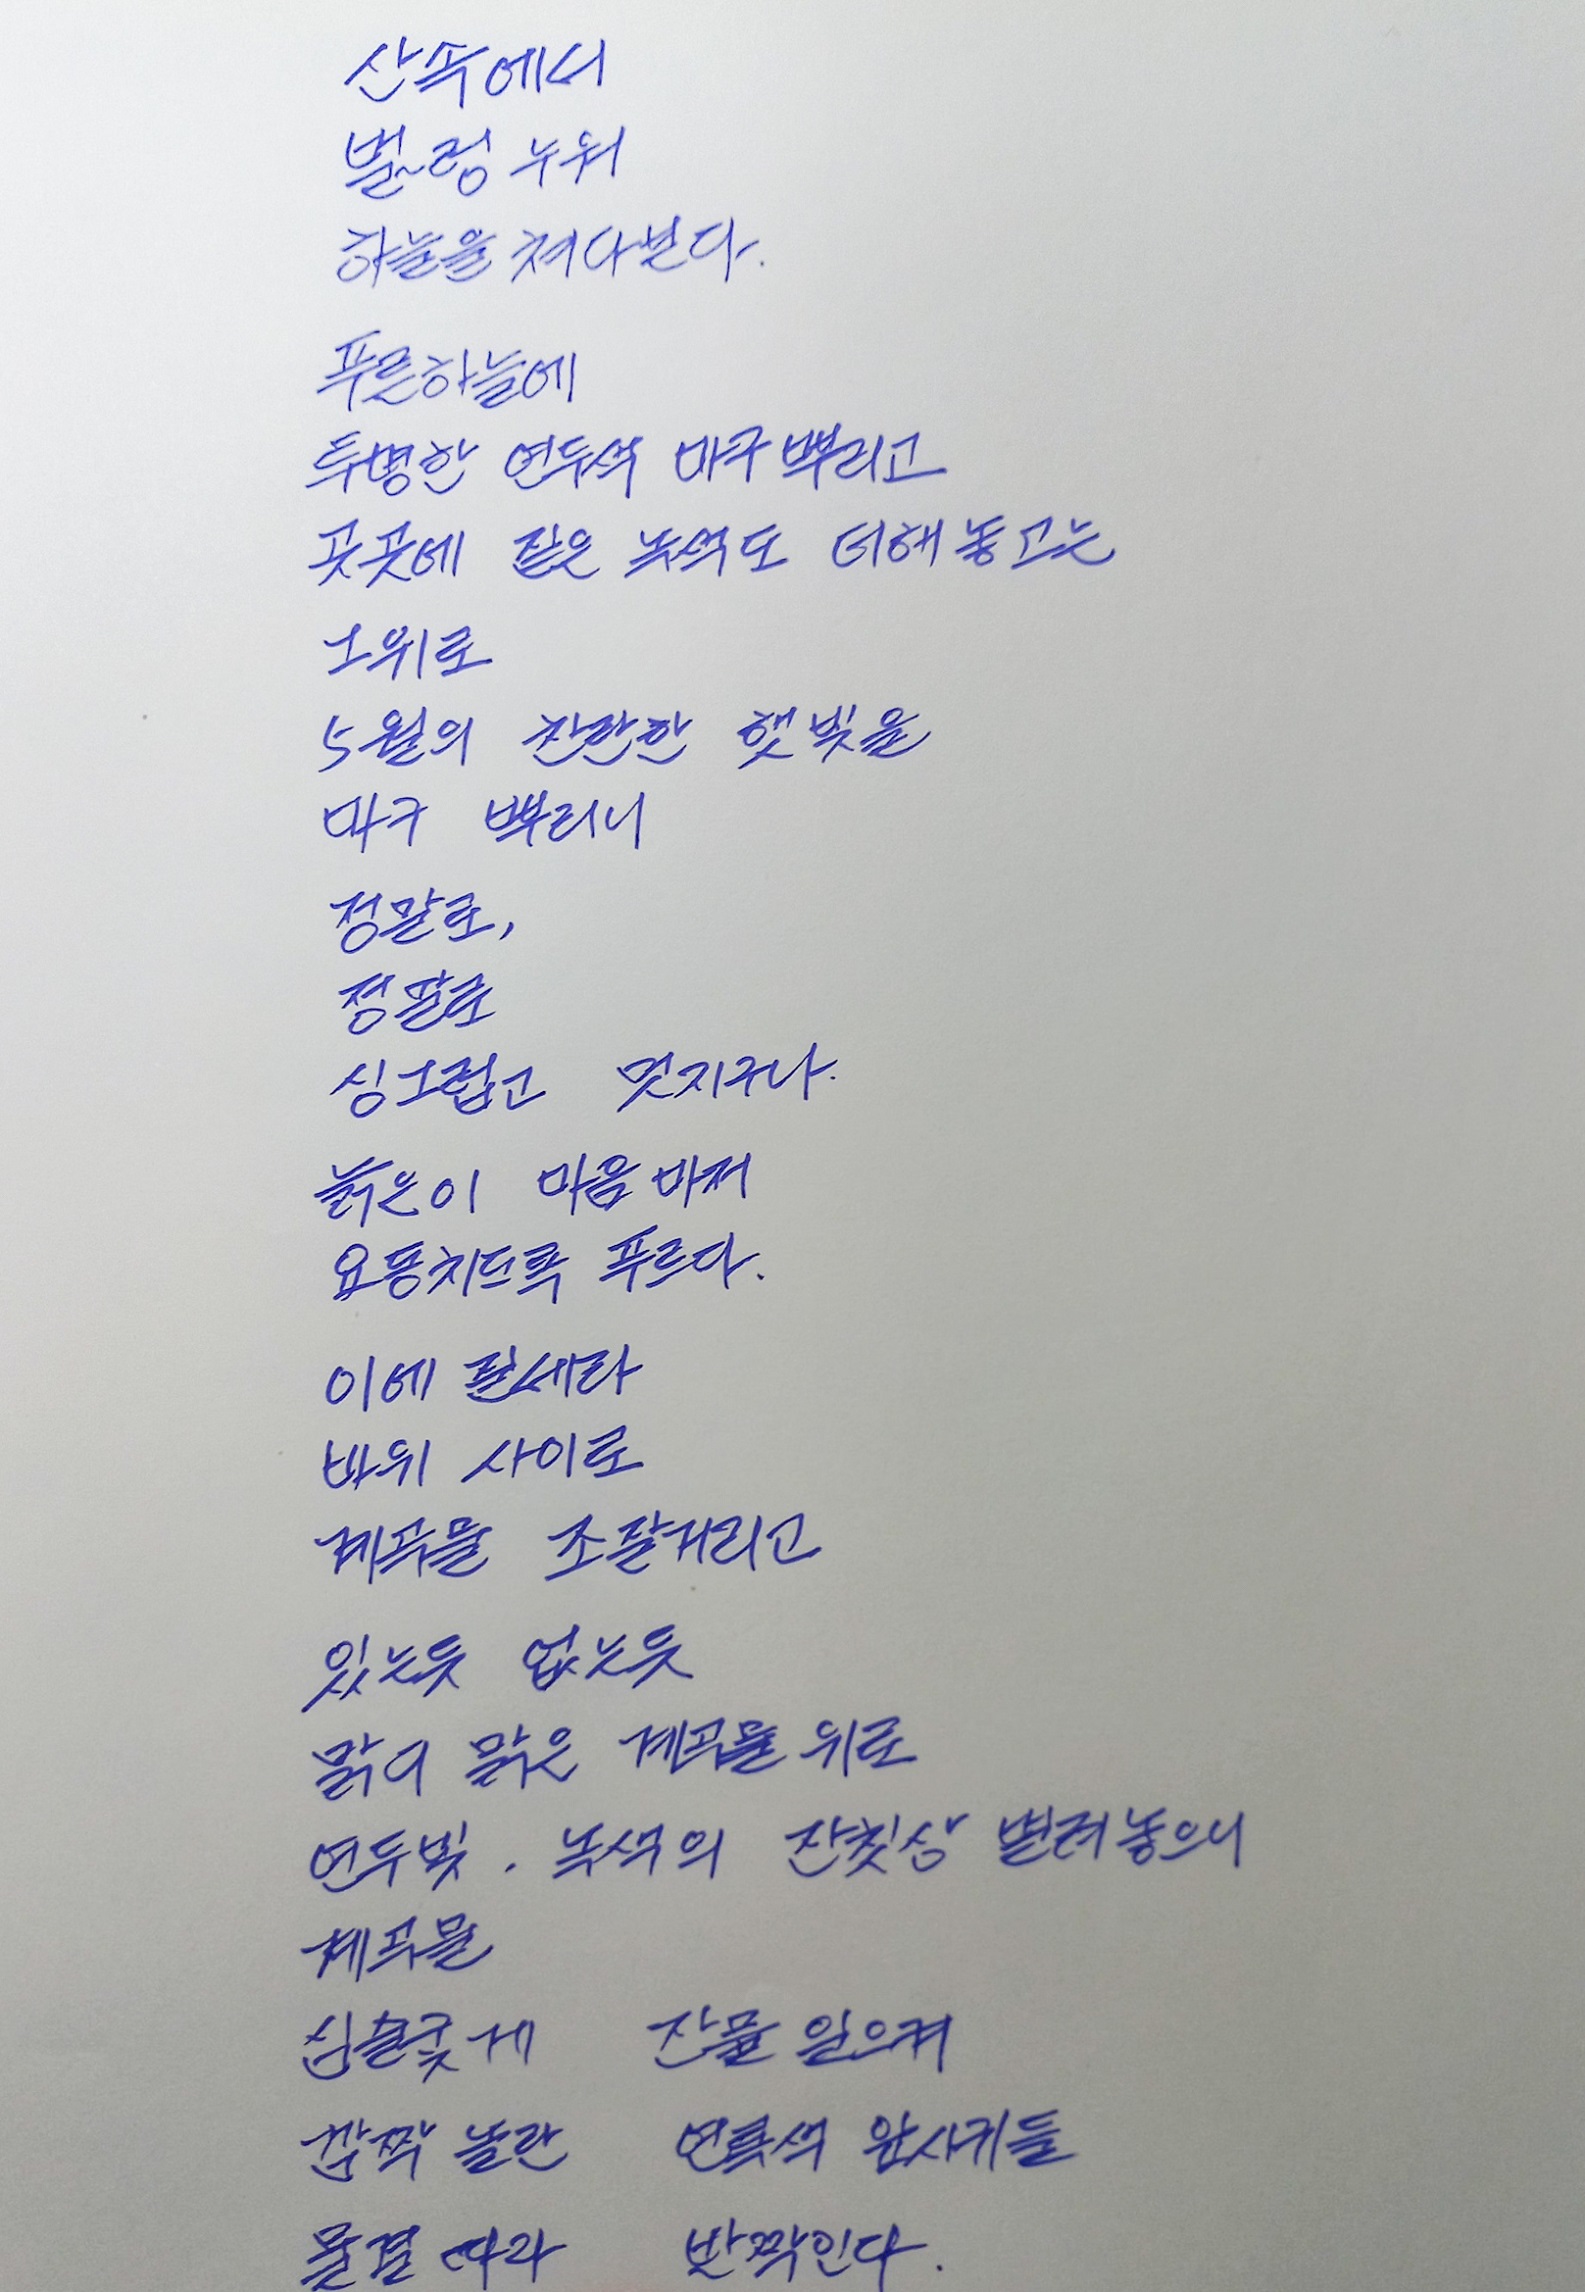 산속에서
벌~렁 누워
하늘을 쳐다본다.
푸른하늘에
투명한 연두색 마구 뿌리고
곳곳에 짙은 녹색도 더해 놓고는
그위로
5월의 찬란한 햇빛을
마구 뿌리니
정말로,
정말로
싱그럽고 멋지구나.
늙은이 마음마저
요동치도록 푸르다.
이에 질세라
바위 사이로
계곡물 조잘거리고
있는듯 없는듯
맑디 맑은 계곡물 위로
연두빛. 녹색의 잔칫상 벌려놓으니
계곡물
심술궂게 잔물 일으켜
깜짝 놀란 연록색 잎사귀들
물결 따라 반짝인다.